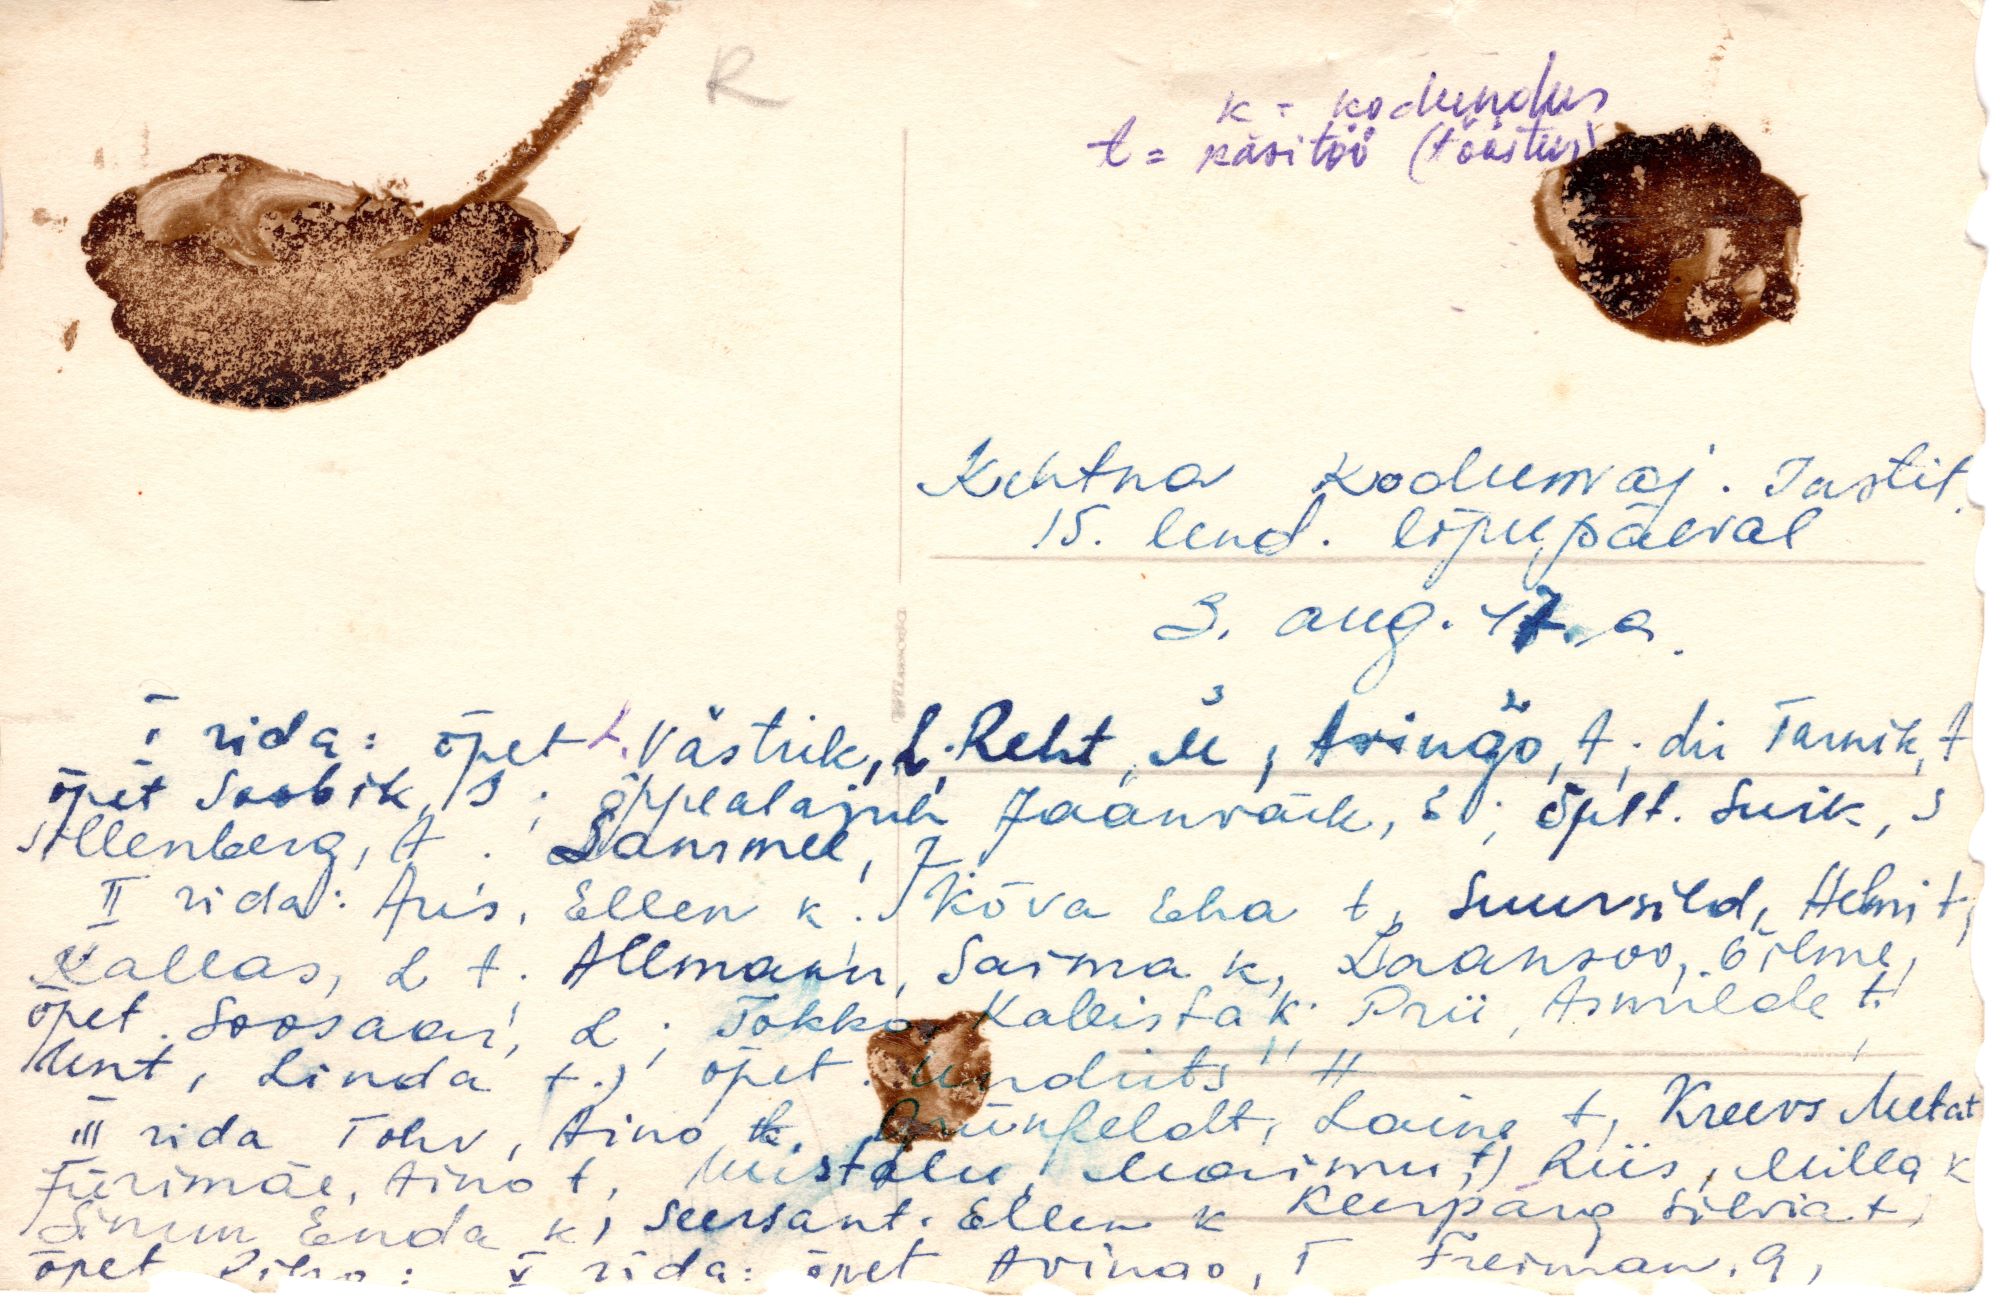 R
k - kodundus
t = käsitöö (tööstus)
Kehtna Kodumaj. Instit.
15. lend. lõpupäeval
3. aug. 47. a.
I rida: õpet L. Västrik, L. Reht, M, Avingo, A; dir Tarnik, A
õpet Soobik, S; õppealajuh Jaanväik, E; õpet. Suik, S
Allenberg, A. Lansmee, J
II rida: Aris, Ellen k. Kõva Eha t, Suursild, Helmi t,
Kallas, L t. Allmann, Saima k, Laansoo, Õilme,
õpet. Soosaar, L; Tokko Kallista k. Prii, Asmilde t.
Unt, Linda t.) õpet. Undrits H
III rida Tohv, Aino k. Grünfeldt, Laine t, Kreevs Meta t
Jürimäe, Aino t, Uistalu, Maimu, t) Riis, Milla k
Sirum Enda k, Seersant. Ellen k Keerpärg Silvia t,
õpet : V rida: õpet Avingo, T Freiman. A,